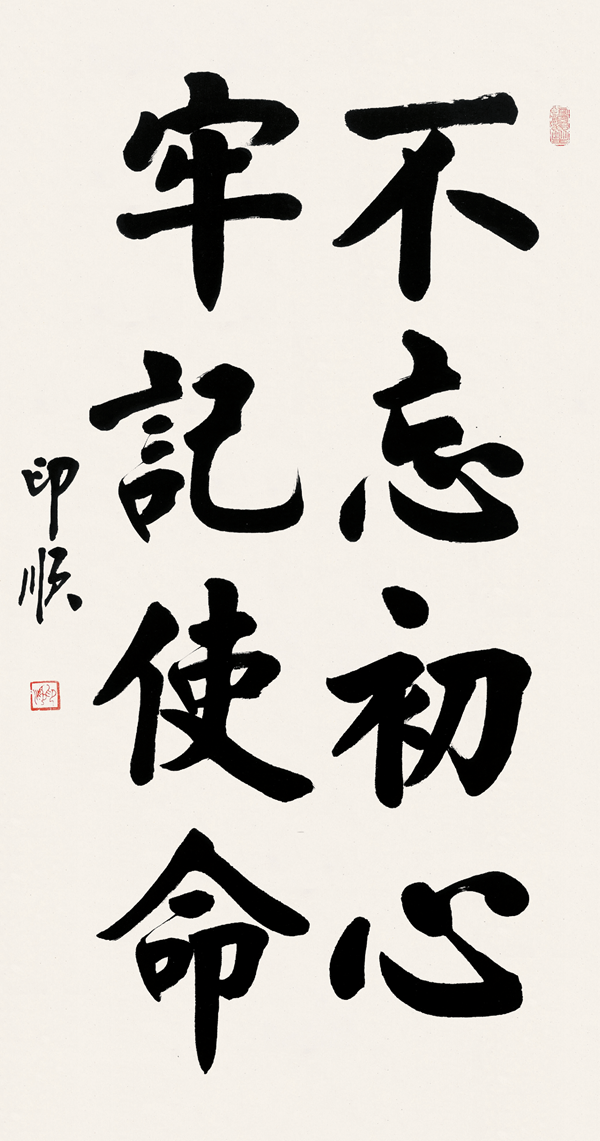 不忘初心
牢記使命
印順